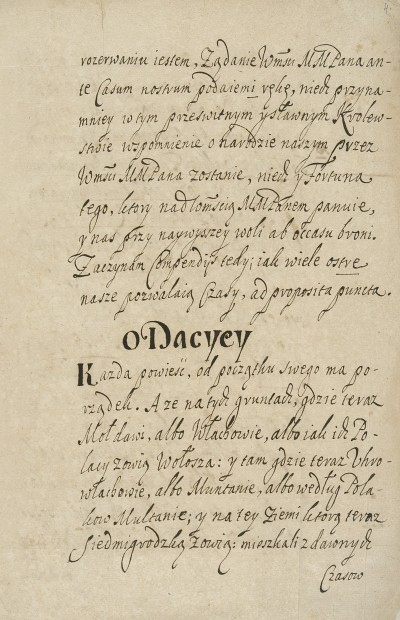 4.
rozerwaniu iestem, Ządanie Wmści MMPana an-
te Casum nostrum podaiemi rękę, niech przyna-
mniey w tym prześwitnym y sławnym Krolew-
stwie wspomnienie o narodzie naszym przez
Wmści MMPana zostanie, niech y Fortuna
tego, ktory nad łomścią MMPanem panuie,
y nas przy naywyszey woli ab occasu broni.
Zaczynam Compendijs tedy; iak wiele ostre
nasze pozwalaią Czasy, ad proposita puncta.
O Dacyey
Kazda powieść, od początku swego ma po-
rządek. A ze na tych gruntach, gdzie teraz
Mołdawi, albo Włachowie, albo iak ich Po-
lacy zowią Wołosza: y tam gdzie teraz Uhro-
włachowie, albo Muntanie, albo według Pola-
kow Multanie; y na tey Ziemi ktorą teraz
Siedmigrodzką zowią: mieszkali z dawnych
Czasow